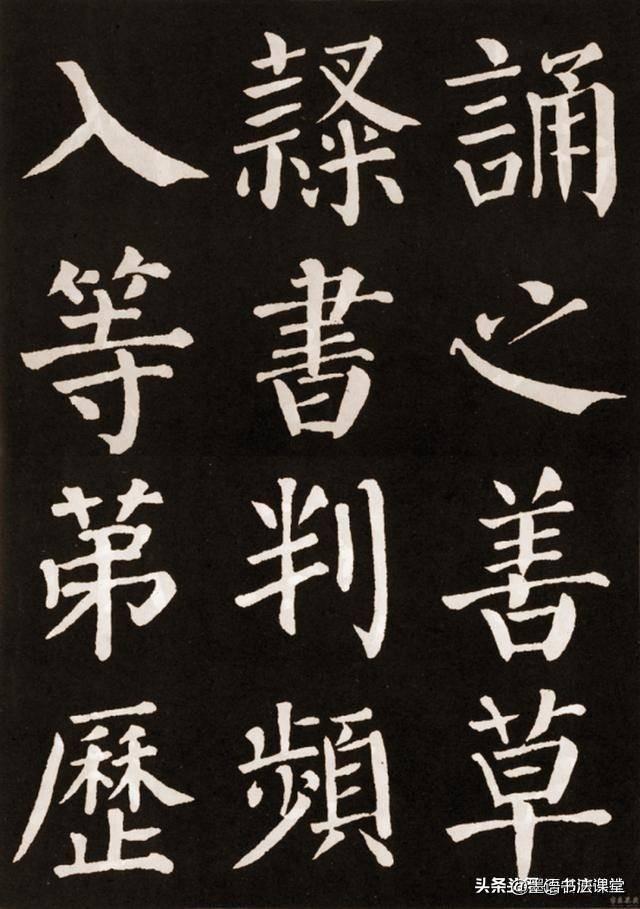 誦之善草
隸書判頻
入等苐歷
头条 @墨语书法课堂